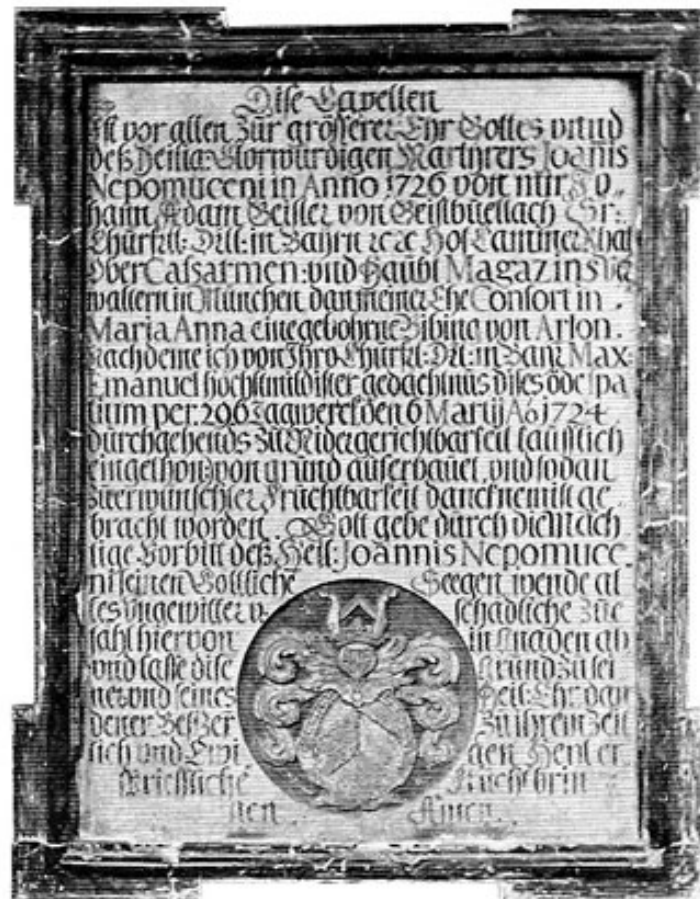 Dise Capellen
Ist vor allen zur grösserer Ehr Gottes vnnd
deß Heilig: Glorwürdigen Martyrers Joañis
Nepomuceni in Anno 1726 von mir Jo,
hann Adam Geisler von Geislbüellach Sr:
Churfrtl: Drl: in Bayrn Hof Cammer Rhat
Ober Casarmen: vnd Haubt Magazins Ver
waltern in München dan meiner Ehe Consort in
Maria Anna eine gebohrne Bibing von Arlon.
Nachdeme ich von Ihro Churfrl: Drl: in Bayr Max:
Emanuel höchstmildister gedachtnus dises öde spa
tium per. 206 Tagwerck den 6 Martij Ao 1724
durchgehends zu Nidergerichtbarkeit
von grund auferbauet, vnd sodan
zu erwünschter Fruchtbarkeit ge
bracht worden. Gott gebe durch die Mäch
tige Vorbitt deß Heil: Joannis Nepomuce
ni seinen Göttliche Seegen wende al
les Vngewitter v: schädliche Zue
fähl hiervon in Gnaden ab
vnd lasse dise Grund zu sei
ner vnd seines Heil: Ehr den
Besizer zu ihrem Zeit
lich vnd Ewi gen Heyl er
Früchte brin
gen. Amen.